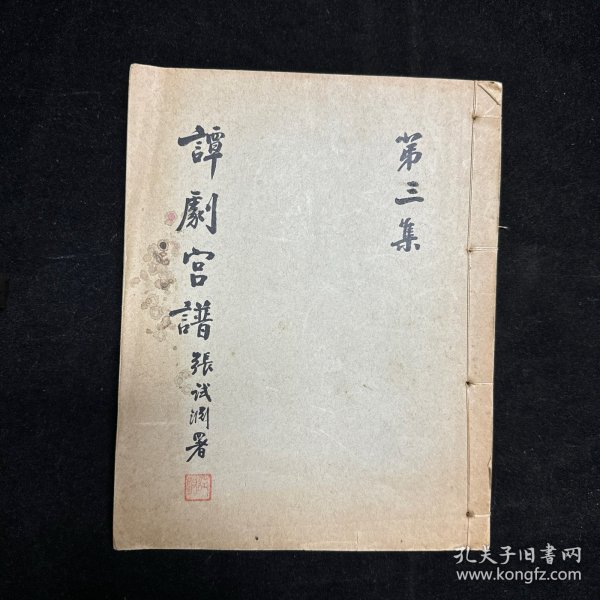 第三集
譚劇宫譜
張試淵署
孔夫子旧書网
www.kongfz.com